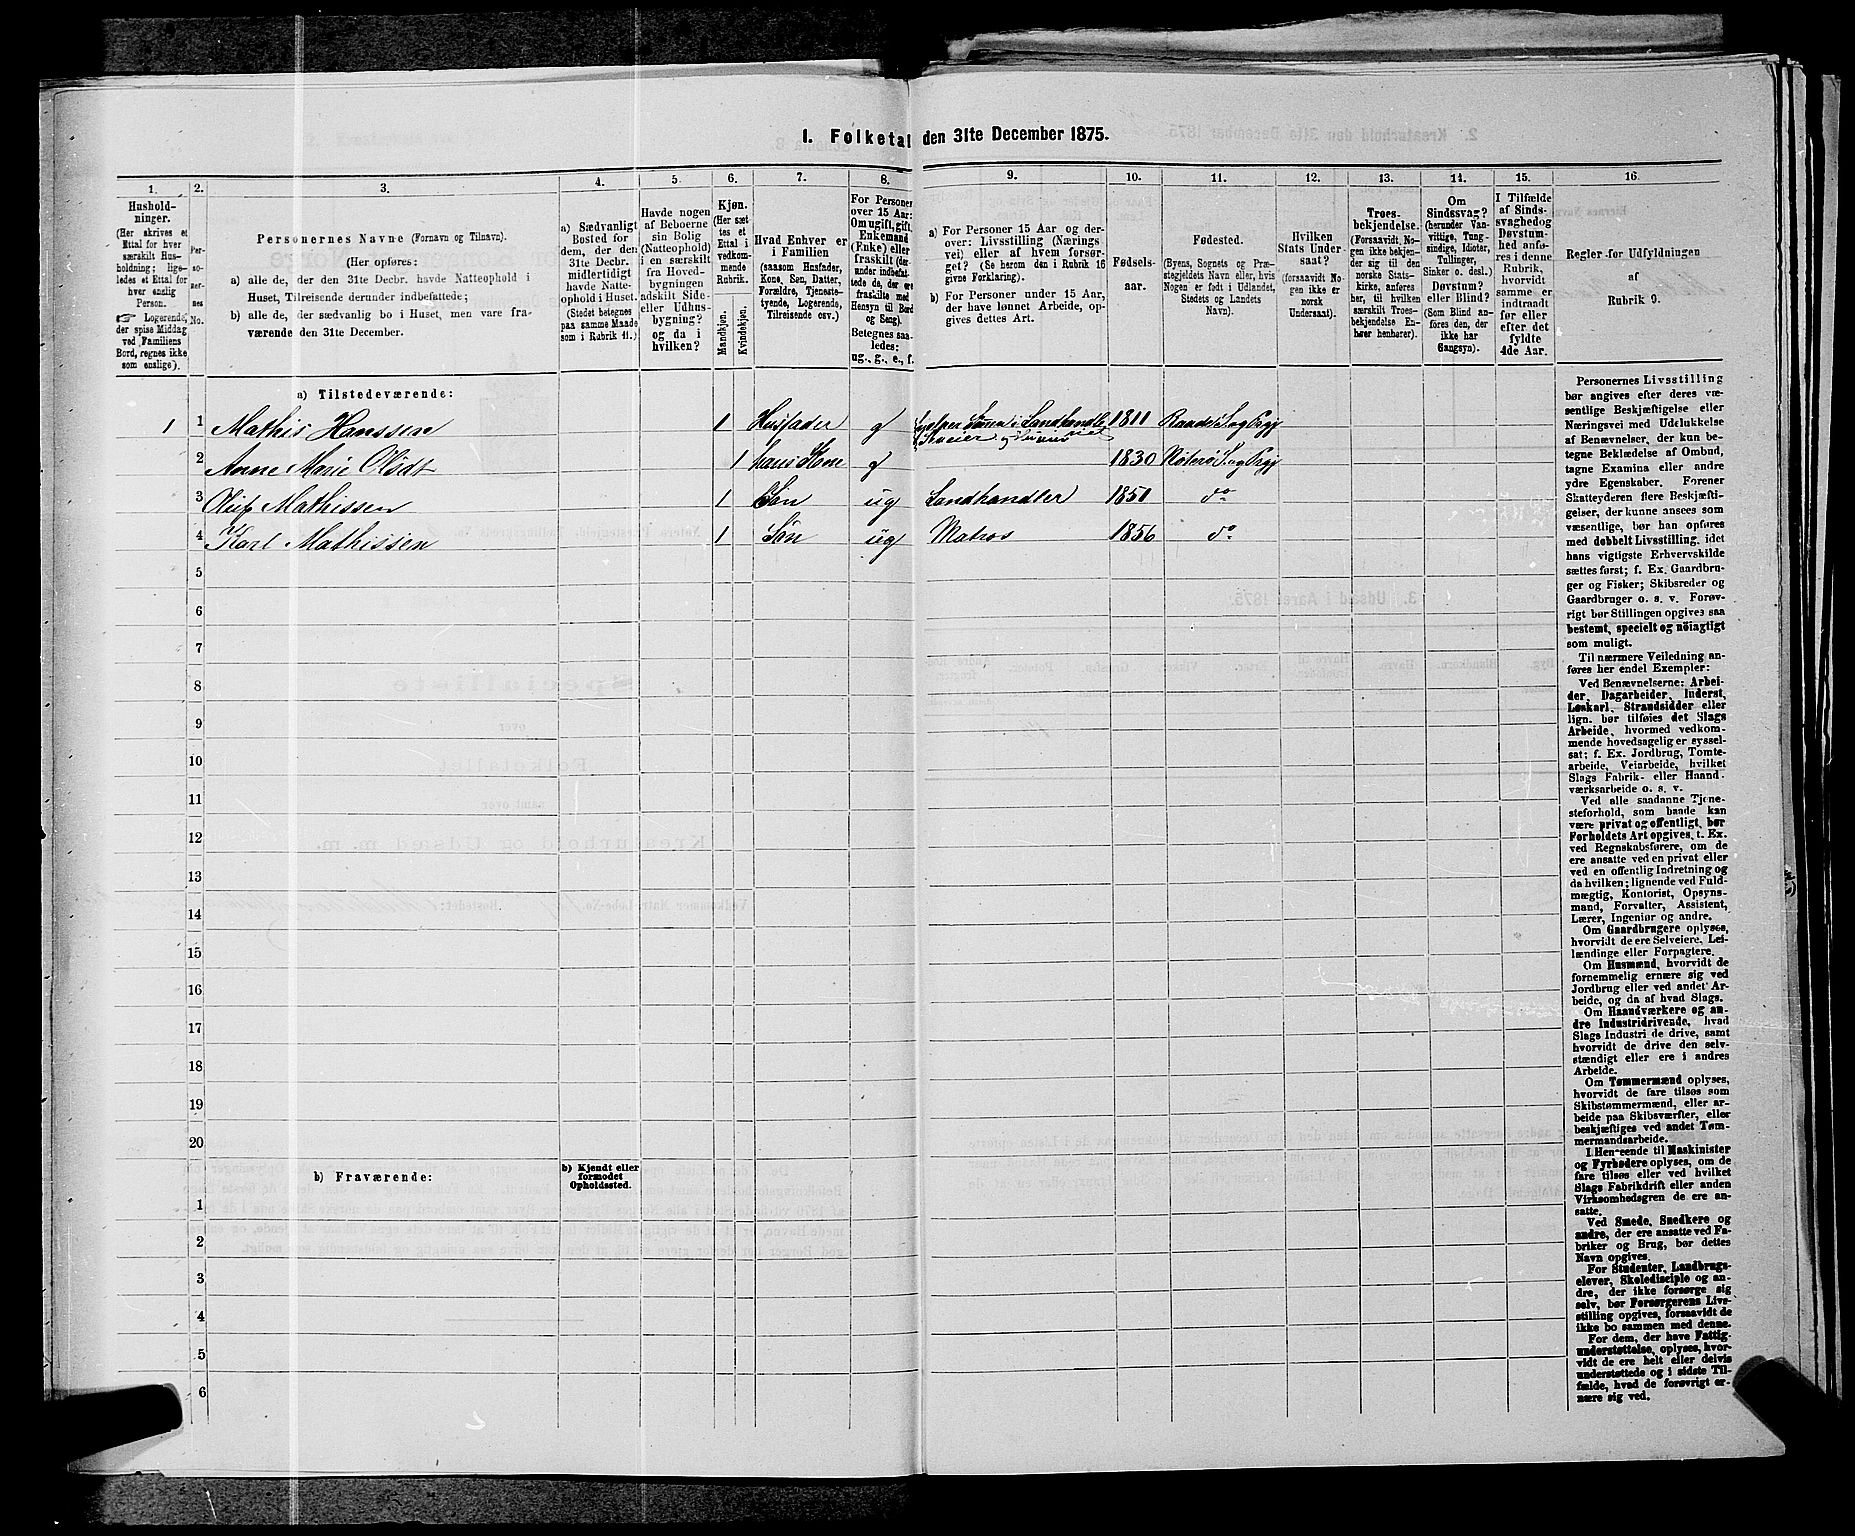 I. Folketal den 31te December 1875.
1. 2. 3. 4. 5. 6. 7. 8. 9. 10. 11. 12. 13. 14. 15. 16.
Hushold-
ninger.
(Her skrives et
Ettal for hver
særskilt Hus-
holdning; lige-
ledes et Ettal
for hver enslig
Person.
☞ Logerende,
der spise Middag
ved Familiens
Bord, regnes ikke
som enslige).
Per-
so-
ner-
nes
No.
Personernes Navne (Fornavn og Tilnavn).
(Her opføres:
a) alle de, der den 31te Decbr. havde Natteophold i
Huset, Tilreisende derunder indbefattede;
b) alle de, der sædvanlig bo i Huset, men vare fra-
værende den 31te December.
a) Sædvanligt
Bosted for
dem, der den
31te Decbr.
midlertidigt
havde Natte-
ophold i Huset.
(Stedet betegnes
paa samme Maade
som i Rubrik 11.)
Havde nogen
af Beboerne
sin Bolig
(Natteophold)
i en særskilt
fra Hoved-
bygningen
adskilt Side-
eller Udhus-
bygning?
og da i
hvilken?
Kjøn.
(Her sæt
tes et
Ettal i
vedkom-
mende
Rubrik.
Mandkjøn.
Kvindekjøn.
Hvad Enhver er
i Familien
(saasom Husfader,
Kone, Søn, Datter,
Forældre, Tjeneste-
tyende, Logerende,
Tilreisende osv.)
For Personer
over 15 Aar:
Om ugift, gift,
Enkemand
(Enke) eller
fraskilt (der-
under indbefat-
tede de, der ere
fraskilte med
Hensyn til Bord
og Seng).
Betegnes saa-
ledes:
ug., g., e., f.
a) For Personer 15 Aar og der-
over: Livsstilling (Nærings
vei) eller af hvem forsør-
get? (Se herom den i Rubrik 16
givne Forklaring).
b) For Personer under 15 Aar,
der have lønnet Arbeide, op-
gives dettes Art.
Fødsels-
aar.
Fødested.
(Byens, Sognets og Præ-
stegjeldets Navn eller, hvis
Nogen er født i Udlandet,
Stedets og Landets
Navn).
Hvilken
Stats Under-
saat?
(forsaavidt No-
gen ikke er
norsk
Undersaat).
Troes-
bekjendelse.
(Forsaavidt No-
gen ikke bekjen-
der sig til den
norske Stats-
kirke, anføres
her, til hvilken
særskilt Troes-
bekjendelse En-
hver henhører).
Om
Sindssvag?
(herunder Van-
vittige, Tung-
sindige, Idioter,
Tullinger,
Sinker o. desl.)
Døvstum?
eller Blind?
(Som Blind an-
føres den, der
ikke har
Gangsyn).
I Tilfælde
af Sinds-
svaghed og
Døvstum-
hed anfø-
res i denne
Rubrik,
hvorvidt
samme er
indtraadt
før eller
efter det
fyldte
4de Aar.
Regler for Udfyldningen
af
Rubrik 9.
a) Tilstedeværende:
1 1 Mathis Hanssen 1 Husfader g Sønnen i Landhandle 1811
2 Anne Marie Olsdt 1 hans Kone g 1830
3 Oluf Mathissen 1 Søn ug Landhandler 1851 do
4 Karl Mathissen 1 Søn ug Matros 1856 do
5
6
7
8
9
10
11
12
13
14
15
16
17
18
19
20
b) Fraværende:
b) Kjendt eller
formodet
Opholdssted.
1
2
3
4
5
6
Personernes Livsstilling
bør angives efter deres væ-
sentlige Beskjæftigelse eller
Næringsvei med Udelukkelse
af Benævnelser, der kun be-
tegne Beklædelse af Ombud,
tagne Examina eller andre
ydre Egenskaber. Forener
Skatteyderen flere Beskjæfti-
gelser, der kunne ansees som
væsentlige, bør han opføres
med dobbelt Livsstilling, idet
hans vigtigste Erhvervskilde
sættes først; f. Ex. Gaardbru-
ger og Fisker; Skibsreder og
Gaardbruger o. s. v. Forøv-
rigt bør Stillingen opgives saa
bestemt, specielt og nøiagtigt
som muligt.
Til nærmere Veiledning an-
føres her endel Exempler:
Ved Benævnelserne: Arbei-
der, Dagarbeider, Inderst,
Løskarl, Strandsidder eller
lign. bør tilføies det Slags
Arbeide, hvormed vedkom-
mende hovedsagelig er syssel-
sat; f. Ex. Jordbrug, Tomte-
arbeide, Veiarbeide, hvilket
Slags Fabrik- eller Haand-
værksarbeide o. s. v.
Ved alle saadanne Tjene-
steforhold, som baade kan
være privat og offentligt, bør
Forholdets Art opgives, t. Ex.
ved Regnskabsførere, om de
ere ansatte ved en privat eller
ved en offentlig Indretning og
da hvilken; lignende ved Fuld-
mægtig, Kontorist, Opsyns-
mand, Forvalter, Assistent,
Lærer, Ingeniør og andre.
Om Gaardbrugere oplyses,
hvorvidt de ere Selveiere, Lei-
lændinge eller Forpagtere.
Om Husmænd, hvorvidt de
fornemmelig ernære sig ved
Jordbrug eller ved andet Ar-
beide, og da af hvad Slags.
Om Haandværkere og an-
dre Industridrivende, hvad
Slags Industri de drive, samt
hvorvidt de drive den selv-
stændigt eller ere i andres
Arbeide.
Om Tømmermænd oplyses,
hvorvidt de fare tilsøs som
Skibstømmermænd, eller ar-
beide paa Skibsværfter, eller
beskjæftiges ved andet Tøm-
mermandsarbeide.
I Henseende til Maskinister
og Fyrbødere oplyses, om de
fare tilsøs eller ved hvilket
Slags Fabrikdrift eller anden
Virksomhedsgren de ere an-
satte.
Ved Smede, Snedkere og
andre, der ere ansatte ved Fa-
briker og Brug, bør dettes
Navn opgives.
For Studenter, Landbrugs-
elever, Skoledisciple og an-
dre, der ikke forsørge sig
selv, bør Forsørgerens Livs-
stilling opgives, forsaavidt de
ikke bo sammen med denne.
For dem, der have Fattig-
understøttelse, oplyses, hvor-
vidt de ere helt eller delvis
understøttede og i sidste Til-
fælde, hvad de forøvrigt er-
nære sig ved.